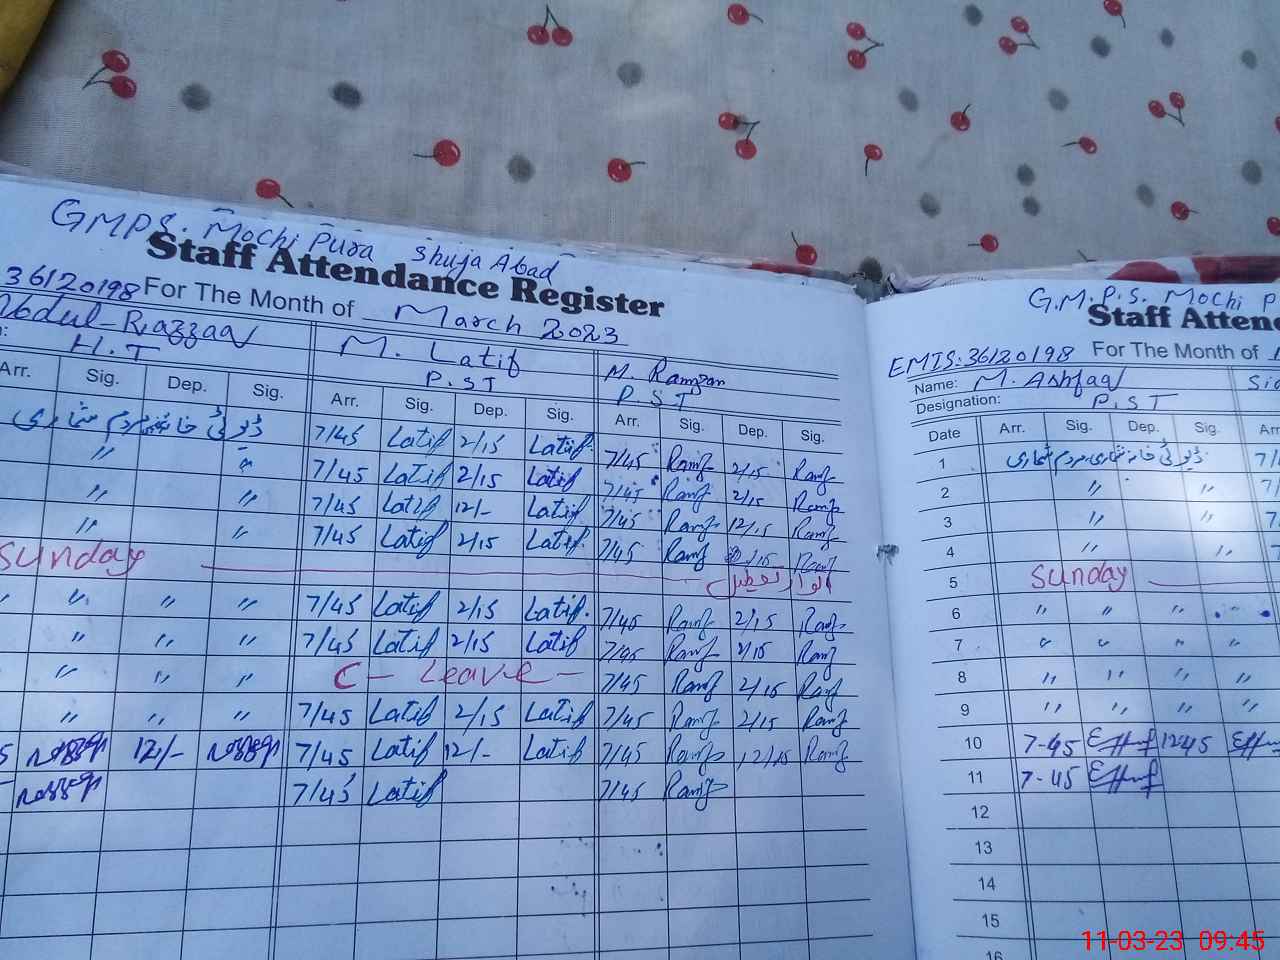 GMPS. Mochi Pura Shuja Abad
Staff Attendance Register
36120198 For The Month of March 2023
Abdul-Razzaq M. Latif M. Ramzan
H.T P.ST P.ST
Arr. Sig. Dep. Sig. Arr. Sig. Dep. Sig. Arr. Sig. Dep. Sig.
ڈیوٹی خانہ مردم شماری 7/45 Latif 2/15 Latif 7/45 Ramz 2/15 Ramz
〃 〃 7/45 Latif 2/15 Latif 7/45 Ramz 2/15 Ramz
〃 〃 7/45 Latif 12/- Latif 7/45 Ramz 12/15 Ramz
〃 〃 7/45 Latif 2/15 Latif 7/45 Ramz 2/15 Ramz
Sunday اتوار تعطیل
〃 〃 〃 〃 7/45 Latif 2/15 Latif 7/45 Ramz 2/15 Ramz
〃 〃 〃 7/45 Latif 2/15 Latif 7/45 Ramz 2/15 Ramz
〃 〃 〃 C - Leave - 7/45 Ramz 2/15 Ramz
〃 〃 〃 7/45 Latif 2/15 Latif 7/45 Ramz 2/15 Ramz
12/- 7/45 Latif 12/- Latif 7/45 Ramz 12/15 Ramz
7/45 Latif 7/45 Ramz
G.M.P.S. Mochi P
Staff Atten
EMIS:36120198 For The Month of
Name: M. Ashfaq
Designation: P.ST
Date Arr. Sig. Dep. Sig. Arr
1 ڈیوٹی خانہ شماری، مردم شماری 7/
2 〃 〃 7/
3 〃 〃 7
4 〃 〃 7
5 Sunday
6 〃 〃 〃
7 〃 〃 〃 〃
8 〃 〃 〃 〃
9 〃 〃 〃 〃
10 7-45 12 45
11 7-45
12
13
14
15
16
11-03-23 09:45